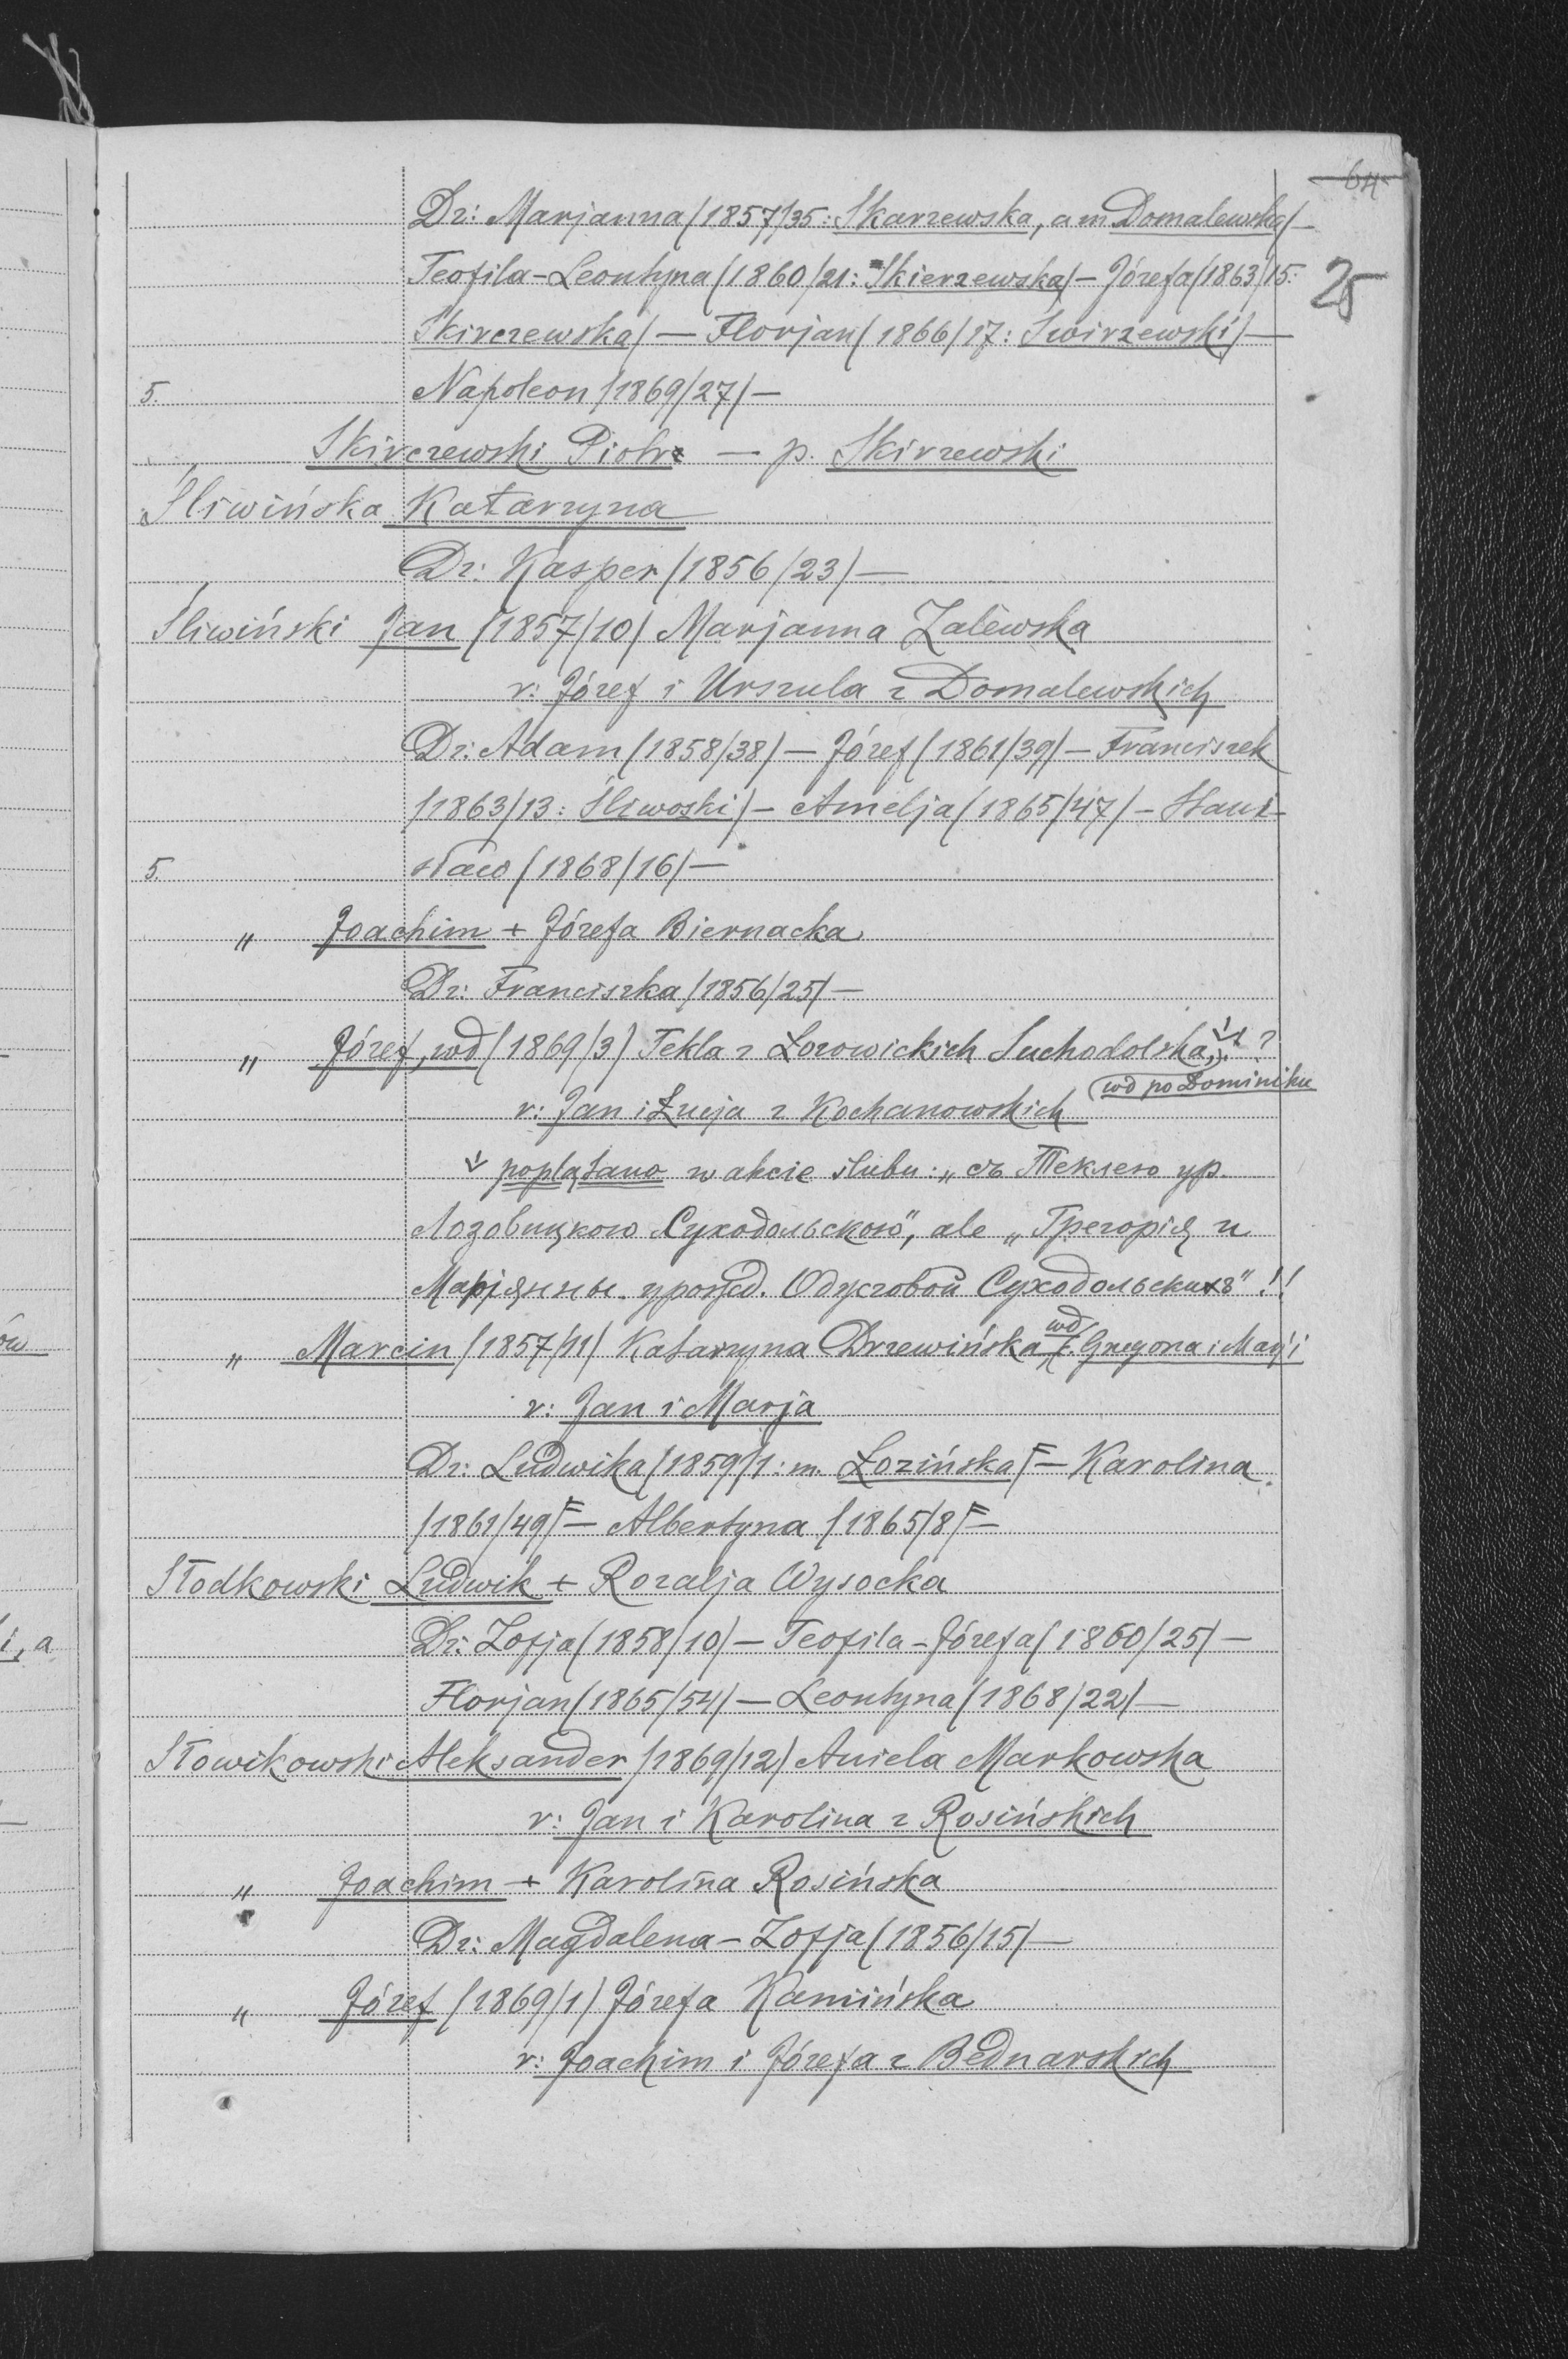 64
25
Dz: Marjanna (1857/35: Skarzewska, a m Domalewska) —
Teofila-Leontyna (1860/21: Skierzewska) — Józefa (1863/15:
Skirczewska) — Florjan (1866/17: Świrzewski) —
5. Napoleon (1869/27) —
Skirczewski Piotr — p. Skirzewski
Śliwińska Katarzyna
Dz: Kasper (1856/23) —
Śliwiński Jan (1857/10) Marjanna Zalewska
r: Józef i Urszula z Domalewskich
Dz: Adam (1858/38) — Józef (1861/39) — Franciszek
(1863/13: Śliwoski) — Amelja (1865/47) — Stani-
5. sław (1868/16) —
" Joachim + Józefa Biernacka
Dz: Franciszka (1856/25) —
" Józef, wd (1869/3) Tekla z Łozowickich Suchodolska, ?
wd po Dominiku
r: Jan i Łucja z Kochanowskich
poplątano w akcie ślubu: „съ Теклею ур.
Лозовицкою Суходольскою", ale „Грегорія и
Маріянны урожд. Одусговой Суходольскихъ" !!
" Marcin (1857/11) Katarzyna Drzewińska, wd c. Grzegorza i Marji
r: Jan i Marja
Dz: Ludwika (1859/1: m. Łozińska) — Karolina
(1861/49) — Albertyna (1865/8) —
Słodkowski Ludwik + Rozalja Wysocka
Dz: Zofja (1858/10) — Teofila-Józefa (1860/25) —
Florjan (1865/54) — Leontyna (1868/22) —
Słowikowski Aleksander (1869/12) Aniela Markowska
r: Jan i Karolina z Rosińskich
" Joachim + Karolina Rosińska
Dz: Magdalena-Zofja (1856/15) —
" Józef (1869/1) Józefa Kamińska
r: Joachim i Józefa z Bednarskich
ów
i, a